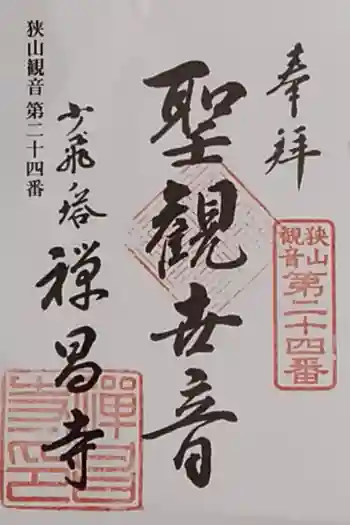 奉拝
狭山
観音
第二十四番
聖観世音
少飛ノ塔
禅昌寺
狭山観音 第二十四番